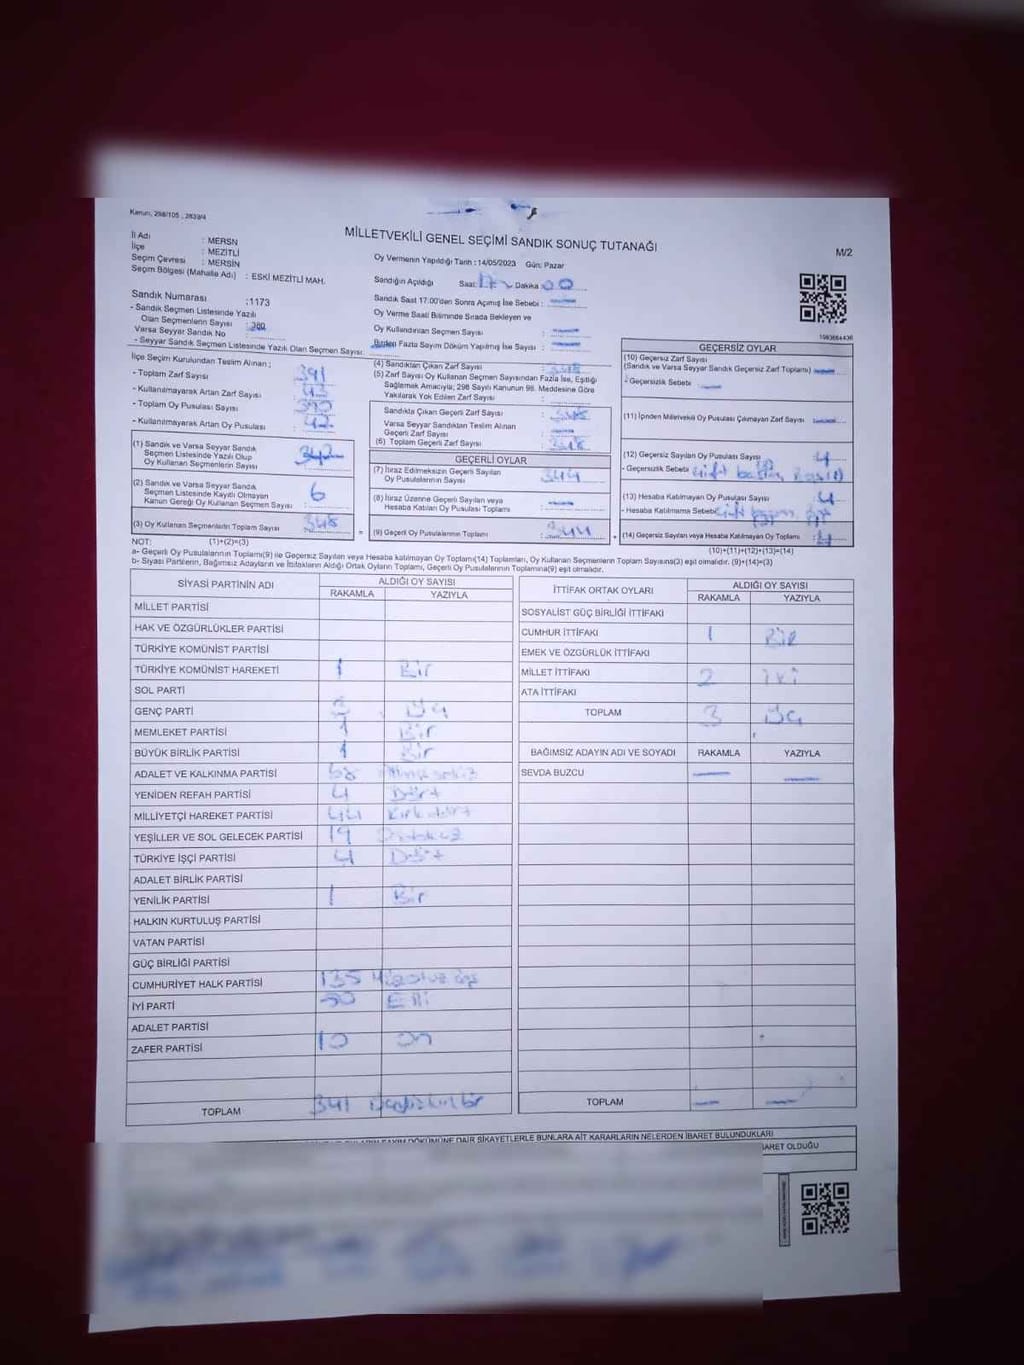 Kanun, 298/105 , 2839/4
MİLLETVEKİLİ GENEL SEÇİMİ SANDIK SONUÇ TUTANAĞI
M/2
İl Adı : MERSİN
İlçe : MEZİTLİ
Seçim Çevresi : MERSİN
Seçim Bölgesi (Mahalle Adı) : ESKİ MEZİTLİ MAH.
Oy Vermenin Yapıldığı Tarih : 14/05/2023 Gün: Pazar
Sandığın Açıldığı Saat: 17 Dakika: 00
Sandık Saat 17:00'den Sonra Açılmış İse Sebebi :
Oy Verme Saati Bitiminde Sırada Bekleyen ve
Oy Kullandırılan Seçmen Sayısı :
Birden Fazla Sayım Döküm Yapılmış İse Sayısı :
Sandık Numarası :1173
- Sandık Seçmen Listesinde Yazılı
Olan Seçmenlerin Sayısı :
Varsa Seyyar Sandık No :
- Seyyar Sandık Seçmen Listesinde Yazılı Olan Seçmen Sayısı:
İlçe Seçim Kurulundan Teslim Alınan ;
- Toplam Zarf Sayısı : 391
- Kullanılmayarak Artan Zarf Sayısı : 43
- Toplam Oy Pusulası Sayısı : 390
- Kullanılmayarak Artan Oy Pusulası : 42
(1) Sandık ve Varsa Seyyar Sandık
Seçmen Listesinde Yazılı Olup
Oy Kullanan Seçmenlerin Sayısı : 342
(2) Sandık ve Varsa Seyyar Sandık
Seçmen Listesinde Kayıtlı Olmayan
Kanun Gereği Oy Kullanan Seçmen Sayısı : 6
(3) Oy Kullanan Seçmenlerin Toplam Sayısı : 348
(4) Sandıktan Çıkan Zarf Sayısı : 348
(5) Zarf Sayısı Oy Kullanan Seçmen Sayısından Fazla İse, Eşitliği
Sağlamak Amacıyla; 298 Sayılı Kanunun 98. Maddesine Göre
Yakılarak Yok Edilen Zarf Sayısı :
Sandıkta Çıkan Geçerli Zarf Sayısı : 348
Varsa Seyyar Sandıktan Teslim Alınan
Geçerli Zarf Sayısı :
(6) Toplam Geçerli Zarf Sayısı : 348
GEÇERLİ OYLAR
(7) İtiraz Edilmeksizin Geçerli Sayılan
Oy Pusulalarının Sayısı : 344
(8) İtiraz Üzerine Geçerli Sayılan veya
Hesaba Katılan Oy Pusulası Toplamı :
(9) Geçerli Oy Pusulalarının Toplamı : 344
GEÇERSİZ OYLAR
(10) Geçersiz Zarf Sayısı
(Sandık ve Varsa Seyyar Sandık Geçersiz Zarf Toplamı) :
- Geçersizlik Sebebi :
(11) İçinden Milletvekili Oy Pusulası Çıkmayan Zarf Sayısı :
(12) Geçersiz Sayılan Oy Pusulası Sayısı : 4
- Geçersizlik Sebebi :
(13) Hesaba Katılmayan Oy Pusulası Sayısı : 4
- Hesaba Katılmama Sebebi:
(14) Geçersiz Sayılan veya Hesaba Katılmayan Oy Toplamı : 4
NOT: (1)+(2)=(3)
(10)+(11)+(12)+(13)=(14)
a- Geçerli Oy Pusulalarının Toplamı(9) ile Geçersiz Sayılan veya Hesaba katılmayan Oy Toplamı(14) Toplamları, Oy Kullanan Seçmenlerin Toplam Sayısına(3) eşit olmalıdır. (9)+(14)=(3)
b- Siyasi Partilerin, Bağımsız Adayların ve İttifakların Aldığı Ortak Oyların Toplamı, Geçerli Oy Pusulalarının Toplamına(9) eşit olmalıdır.
SİYASİ PARTİNİN ADI ALDIĞI OY SAYISI
RAKAMLA YAZIYLA
MİLLET PARTİSİ
HAK VE ÖZGÜRLÜKLER PARTİSİ
TÜRKİYE KOMÜNİST PARTİSİ
TÜRKİYE KOMÜNİST HAREKETİ 1 Bir
SOL PARTİ
GENÇ PARTİ 3 Üç
MEMLEKET PARTİSİ 1 Bir
BÜYÜK BİRLİK PARTİSİ 1 Bir
ADALET VE KALKINMA PARTİSİ 68
YENİDEN REFAH PARTİSİ 4 Dört
MİLLİYETÇİ HAREKET PARTİSİ 44 Kırkdört
YEŞİLLER VE SOL GELECEK PARTİSİ 19
TÜRKİYE İŞÇİ PARTİSİ 4 Dört
ADALET BİRLİK PARTİSİ
YENİLİK PARTİSİ 1 Bir
HALKIN KURTULUŞ PARTİSİ
VATAN PARTİSİ
GÜÇ BİRLİĞİ PARTİSİ
CUMHURİYET HALK PARTİSİ 135
İYİ PARTİ 50 Elli
ADALET PARTİSİ
ZAFER PARTİSİ 10 on
TOPLAM 341
İTTİFAK ORTAK OYLARI ALDIĞI OY SAYISI
RAKAMLA YAZIYLA
SOSYALİST GÜÇ BİRLİĞİ İTTİFAKI
CUMHUR İTTİFAKI 1 Bir
EMEK VE ÖZGÜRLÜK İTTİFAKI
MİLLET İTTİFAKI 2 iki
ATA İTTİFAKI
TOPLAM 3 Üç
BAĞIMSIZ ADAYIN ADI VE SOYADI RAKAMLA YAZIYLA
SEVDA BUZCU
TOPLAM
DÖKÜMÜNE DAİR ŞİKAYETLERLE BUNLARA AİT KARARLARIN NELERDEN İBARET BULUNDUKLARI
İBARET OLDUĞU